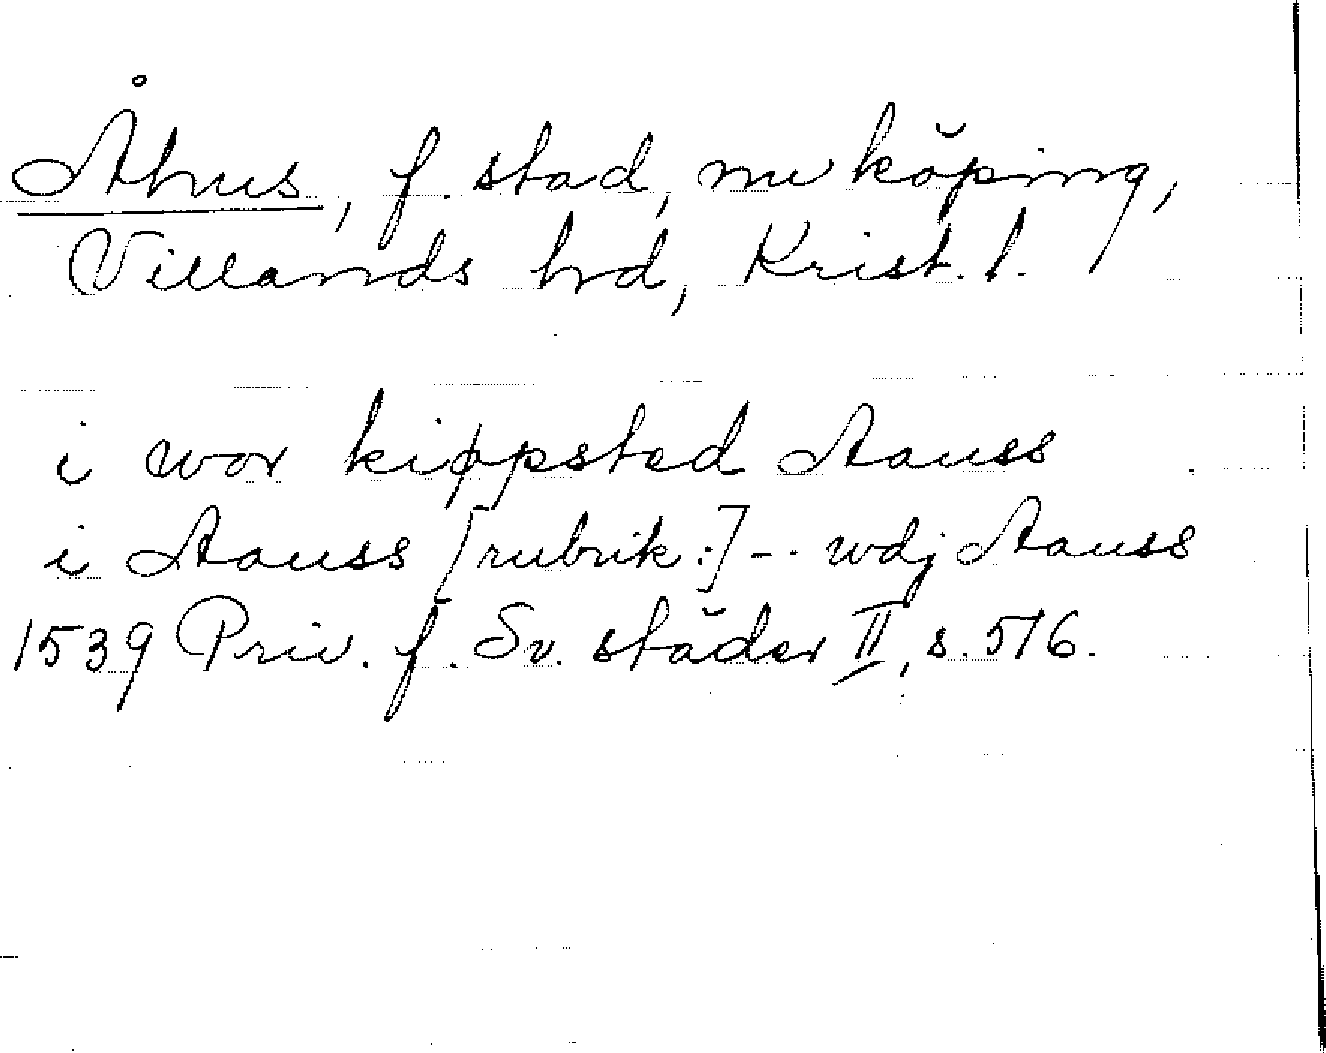 Åhus, f. stad, nu köping,
Villands hd, Krist. l.
i wor kippsted Aauss
i Aauss [rubrik:] -- wdj Aauss
1539 Priv. f. Sv. städer II, s. 576.